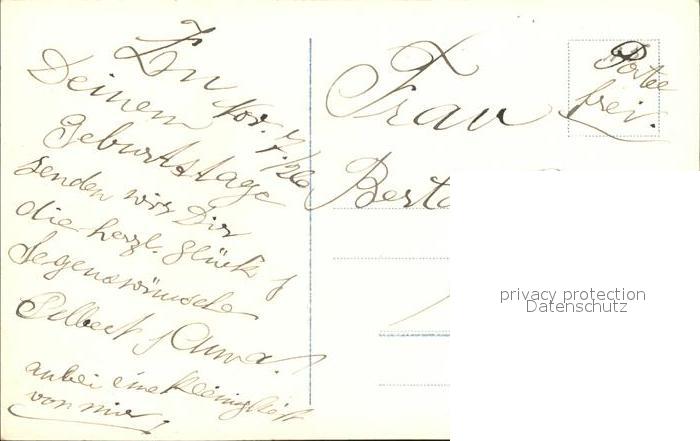 Zu
Deinem
Nov. 7./26
Geburtstage
senden wir Dir
die herzl. Glück &
Segenswünsche
Albert & Anna.
anbei eine Kleinigkeit
von mir!
Frau
Berta
Porto
frei.
privacy protection
Datenschutz